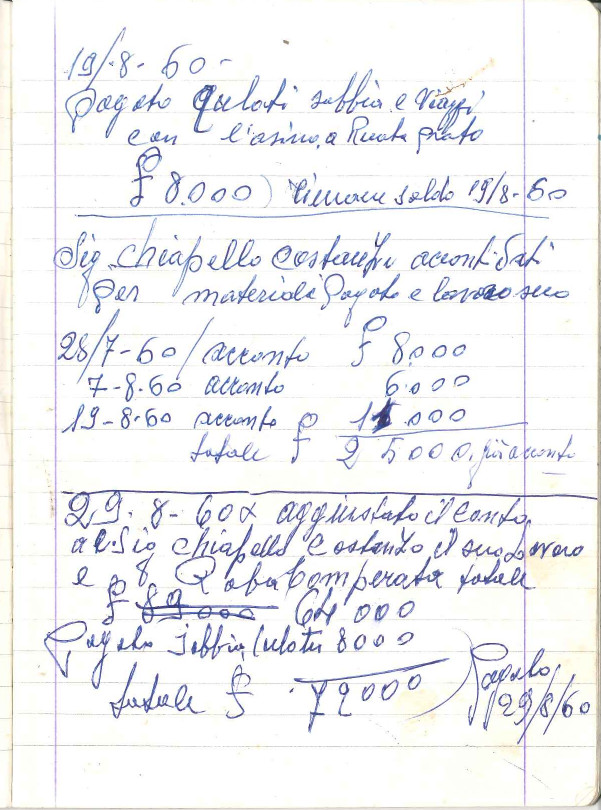 19/-8-60-
Pagato Guloti sabbia e Viaggi
con l'asino, a Ruata Prato
£ 8.000) rimane saldo 19/8-60
Sig Chiapello Costanzo acconti dati
per materiale Pagato e lavoro suo
28/7-60/acconto £ 8.000
7-8.60 acconto 6.000
19-8-60 acconto £ 11.000
totale £ 25000, più acconto
29-8-60 aggiustato il conto
al Sig Chiapello Costanzo il suo Lavoro
e Roba Comperata totale
£ 89000 64 000
Pagato Sabbia 8000
totale £ 72000 Pagato
29/8/60